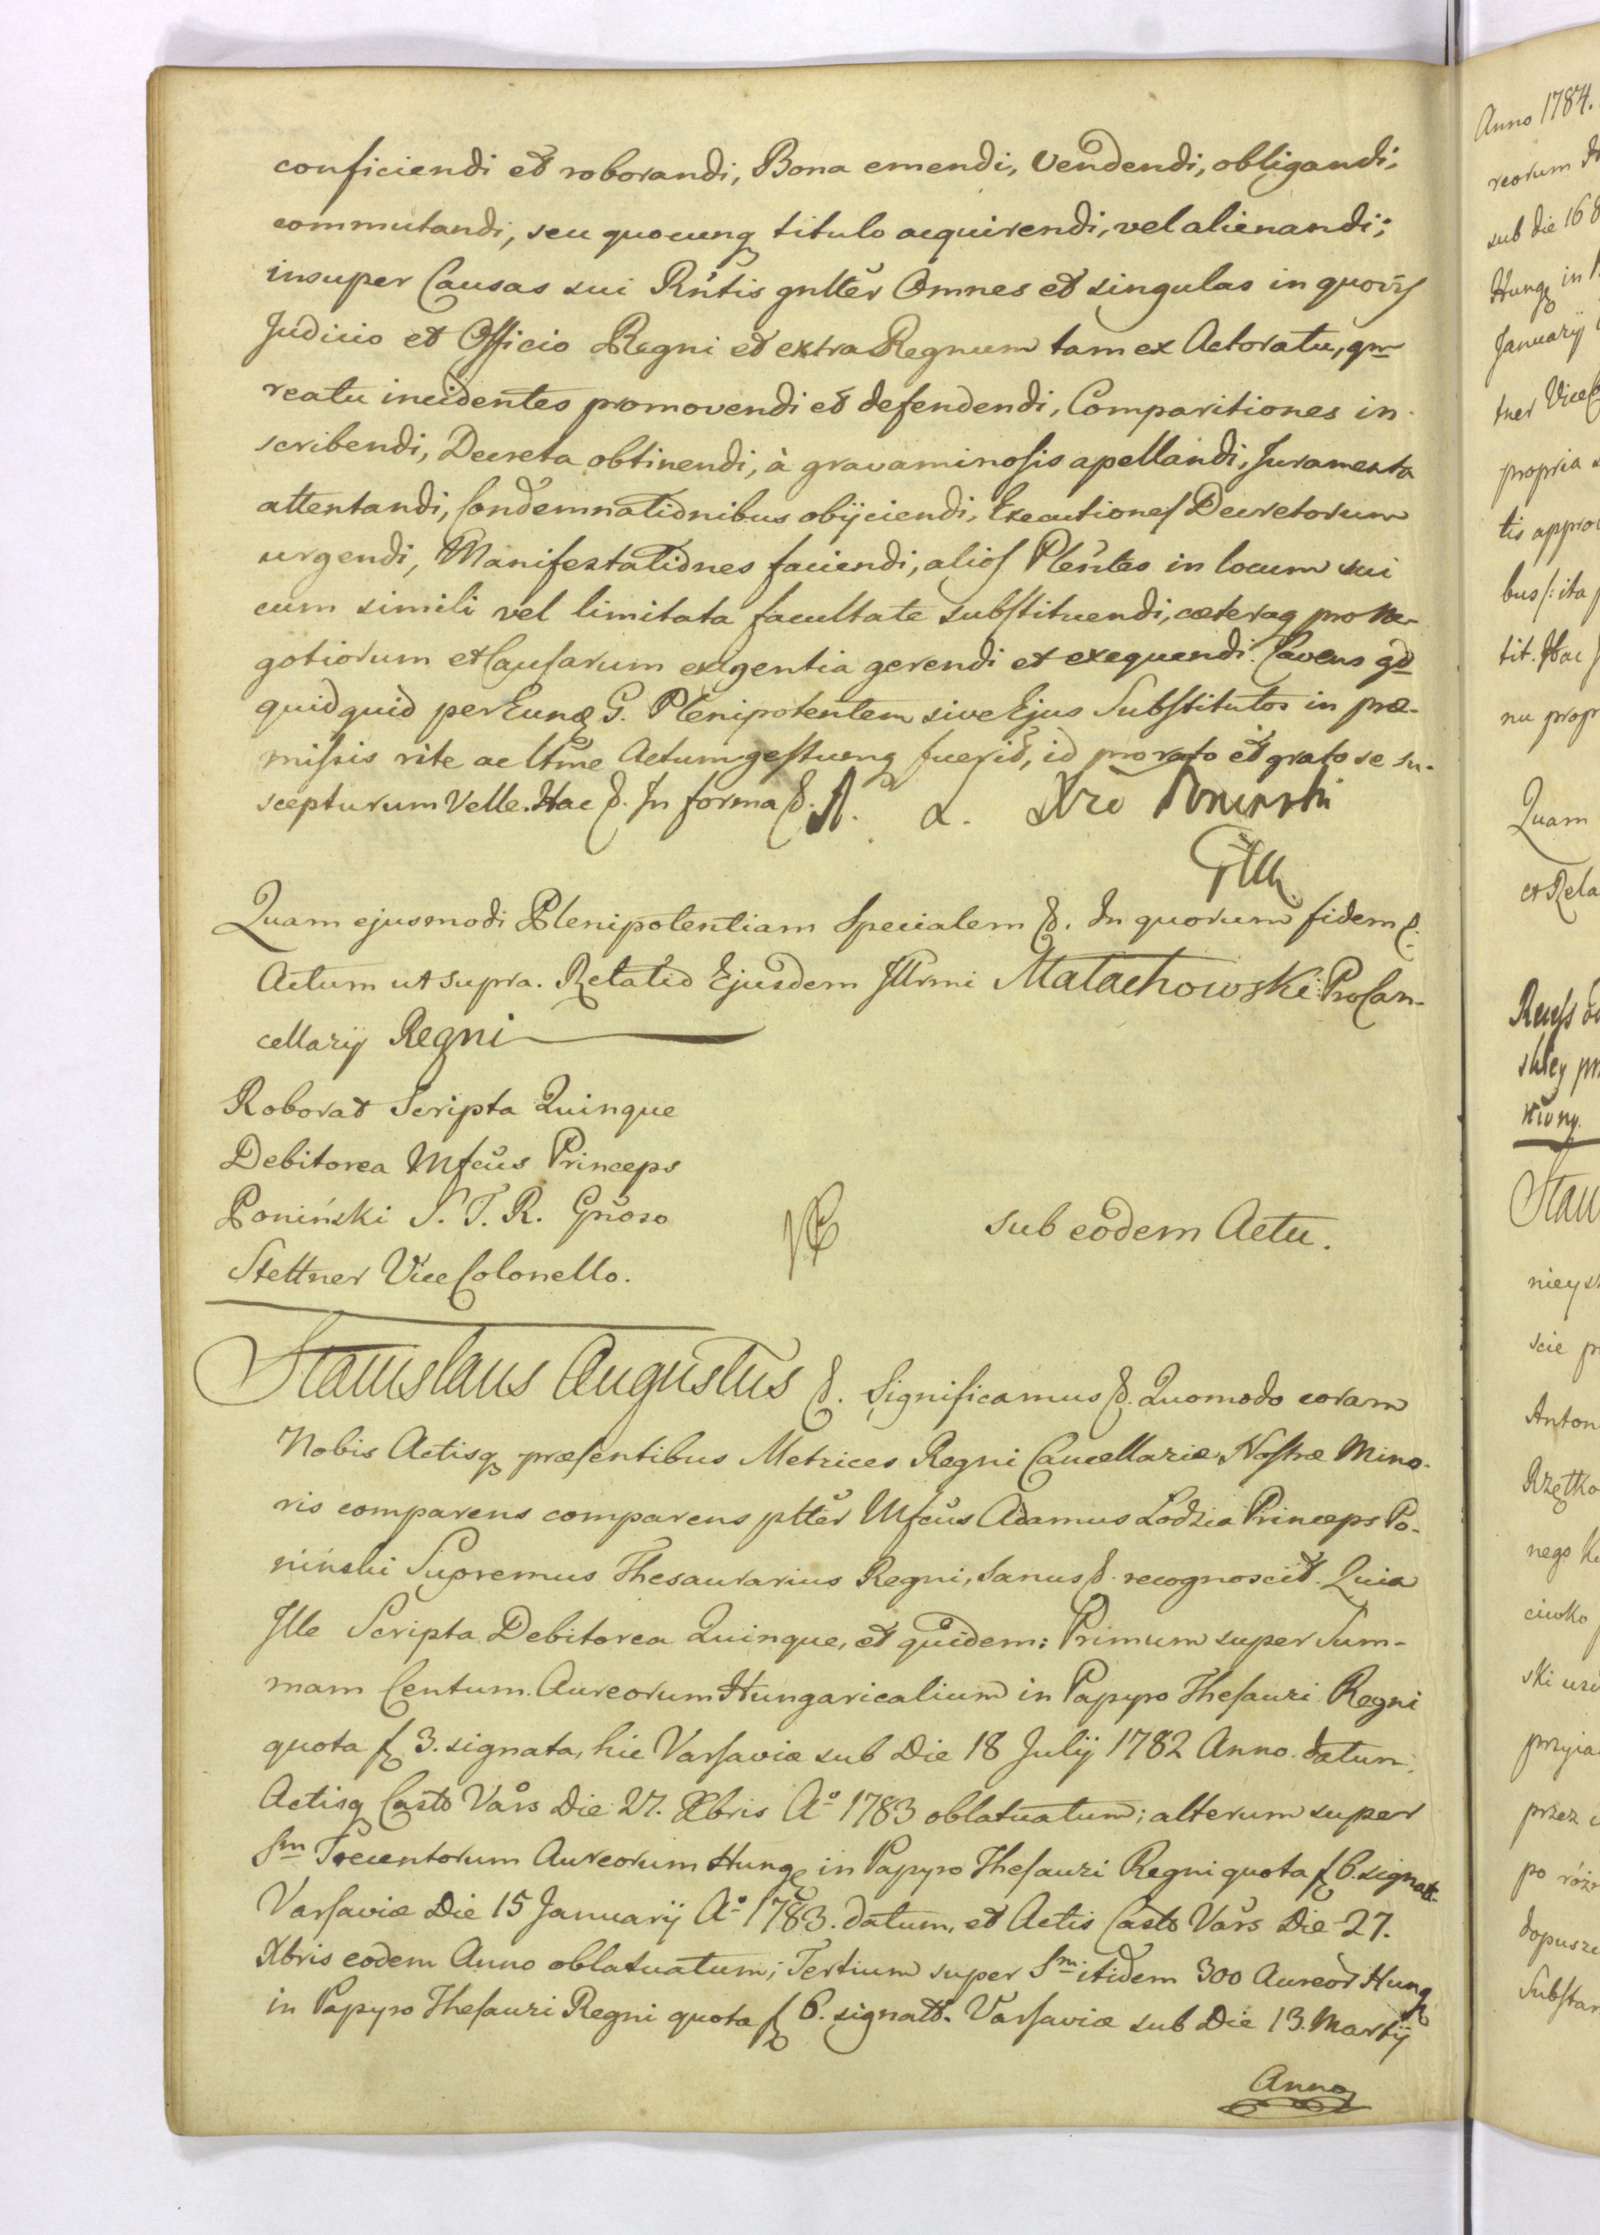 conficiendi et roborandi, Bona emendi, vendendi, obligandi,
commutandi, seu quocunq titulo acquirendi, vel alienandi;
insuper Causas sui Rntis gnlter Omnes et singulas in quovis
Judicio et Officio Regni et extra Regnum tam ex Actoratu, qm
reatu incidentes promovendi et defendendi, Comparitiones in-
scribendi, Decreta obtinendi, à gravaminosis apellandi, Juramenta
attentandi, Condemnationibus obijciendi, Executiones Decretorum
urgendi, Manifestationes faciendi, alios Plentes in locum sui
cum simili vel limitata facultate substituendi, cæteraq pro Ne-
gotiorum et Causarum exigentia gerendi et exequendi. Cavens qd
quidquid per Eund G. Plenipotentem sive Ejus Substitutos in præ-
missis rite ac ltme Actum gestumq fuerit, id pro rato et grato se su-
scepturum velle. Hac &. In forma &. A. Xże Poninski
Quam ejusmodi Plenipotentiam Specialem &. In quorum fidem &:
Actum ut supra. Relatio Ejusdem Illrmi Małachowski ProCan-
cellarij Regni
Roborat Scripta Quinque
Debitorea Mfcus Princeps
Poniński S. T. R. Gnoso
Stettner ViceColonello.
sub eodem Actu.
Stanislaus Augustus &. Significamus &. Quomodo coram
Nobis Actisq præsentibus Metrices Regni Cancellariæ Nostræ Mino-
ris comparens comparens ptter Mfcus Adamus Lodzia Princeps Po-
niński Supremus Thesaurarius Regni, sanus &. recognoscit. Quia
Ille Scripta Debitorea Quinque, et quidem: Primum super Sum-
mam Centum Aureorum Hungaricalium in Papyro Thesauri Regni
quota f 3. signata, hic Varsaviæ sub Die 18 Julij 1782 Anno datum,
Actisq Castr Vars Die 27. Xbris Aº 1783 oblatuatum; alterum super
Sm Trecentorum Aureorum Hung in Papyro Thesauri Regni quota f 6. signat.
Varsaviæ Die 15 Januarij Aº 1783. datum, et Actis Castr Vars Die 27.
Xbris eodem Anno oblatuatum; Tertium super Sm itidem 300 Aureor Hung
in Papyro Thesauri Regni quota f 6. signato. Varsaviæ sub Die 13. Martij
Anno
Anno 1784.
reorum
sub die 16
Hung in
Januarij
tner Vice
propria
tis appro
bus/: ita
tit. Hac
nu propr
Quam
et Rela
skiey
Stan
nieys
scie
Anton
nego
ciwko
przez
po
dopuszc
Substan